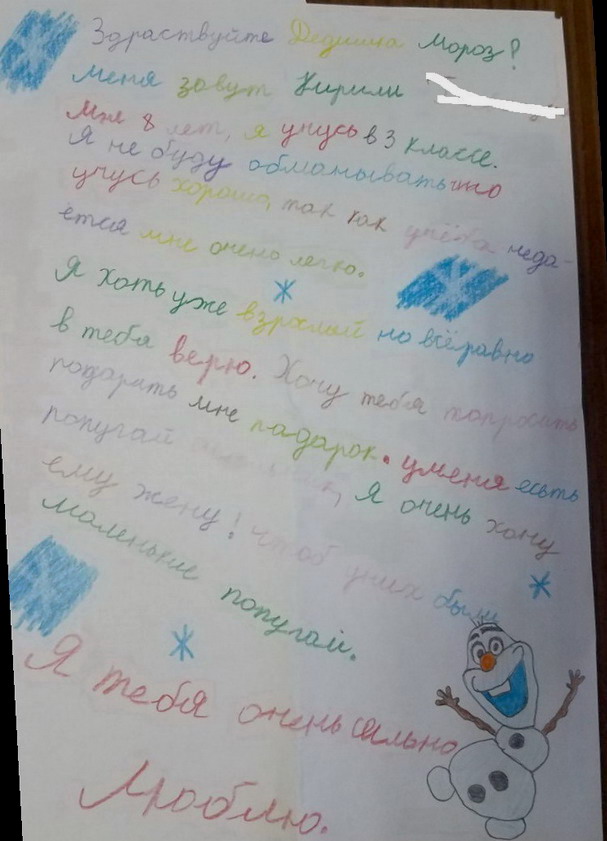 Здраствуйте Дедушка Мороз!
Меня зовут Кирилл
Мне 8 лет, я учусь в 3 классе.
Я не буду обманывать что
учусь хорошо, так как учёба неда-
ётся мне очень легко.
Я хоть уже взрослый но всёравно
в тебя верю. Хочу тебя попросить
подарить мне падарок. уменя есть
попугай Я очень хочу
ему жену! Чтоб уних были
маленькие попугай.
Я тебя очень сильно
Люблю.